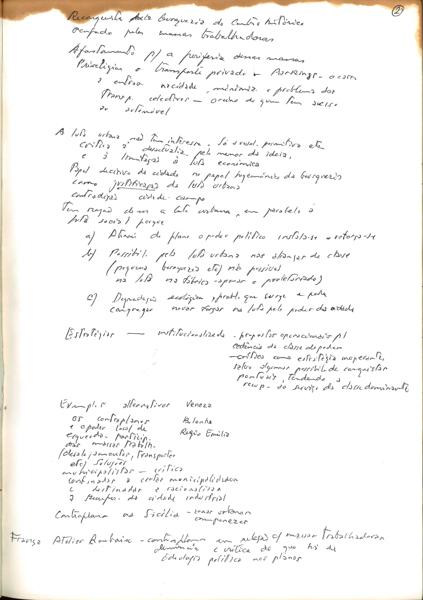 ②
Reconquista pela burguesia do Centro histórico
ocupado pelas massas trabalhadoras
Afastamento p/ a periferia dessas massas
Privilegiar o transporte privado +
a cidade, minimiza o problema dos
transp. colectivos — de quem tem acesso
ao automóvel
A luta urbana não tem interesse. Só social, primitiva etc
Crítica à pelo menos da ideia,
e à limitação à luta económica
Papel decisivo da cidade no papel hegemónico da burguesia
como justificação da luta urbana
contradição cidade-campo
Tem razão de ser a luta urbana, em paralelo à
luta social porque
a) Através do plano o poder político instala-se e reforça-se
b) Possibil. pela luta urbana nas alianças de classe
(pequena burguesia etc) não possível
na luta na fábrica (apenas o proletariado)
c) Degradação ecológica, probl. que surge e pode
congregar novas forças na luta pelo poder da cidade
Estratégias — institucionalizada - propostas operacionais p/
cedência da classe de poder
— crítica como estratégia inoperante,
salvo algumas possibil. de conquistas
pontuais, tendendo à
recup. ao serviço da classe dominante
Exemplos alternativos Veneza
os contraplanos Bolonha
e o poder local de Região Emilia
esquerda - particip.
das massas trabalh.
(desalojamentos, transportes
etc) soluções
municipalistas — crítica
confinadas a certas municipalidades
e destinadas a racionalizar
a da cidade industrial
Contraplano na Sicília - zonas urbanas
camponesas
França Atelier - contraplano em relação c/ massas trabalhadoras
denúncia e crítica do que há de
ideologia política nos planos